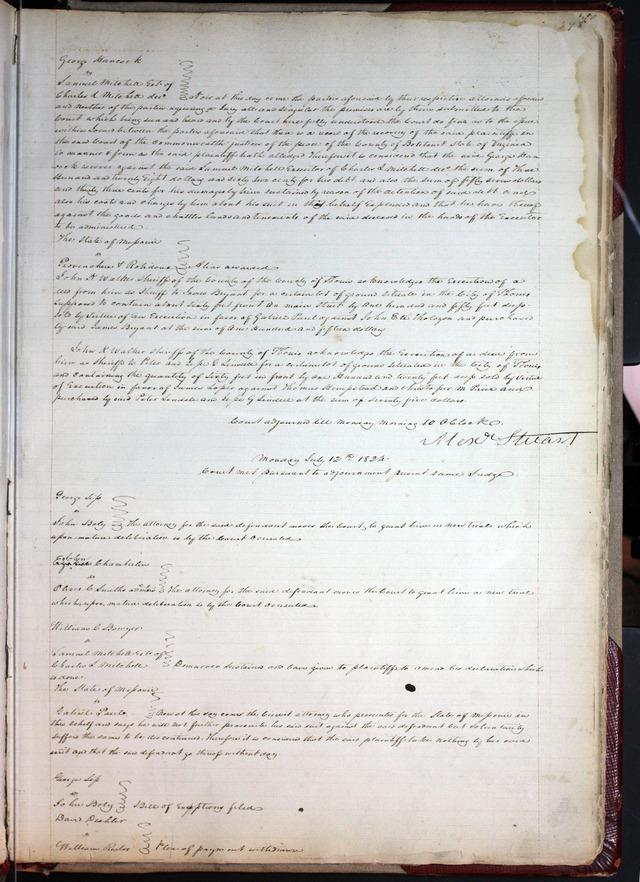 George Hancock
vs
Samuel Mitchell Exr. of
Charles L Mitchell decd Now at this day came the parties aforesaid by their respective attornies aforesaid
and neither of the parties requiring a Jury all and singular the premises are by them submitted to the
Court which being seen and heard and by the Court here fully understood the Court do find as to the issue
within Joined between the parties aforesaid that there is a record of the recovery of the said plaintiff in
the said Court of the Commonwealth justices of the peace of the County of Botetourt State of Virginia
in manner & form as the said plaintiff hath alledged Therefore it is considered that the said George Han
cock recover against the said Samuel Mitchell Executor of Charles L Mitchell decd the sum of Three
Hundred and twenty Eight dollars and sixty two cents for his debt and also the sum of fifty seven dollars
and thirty three Cents for his damages by him sustained by reason of the detention of said debt and
also his costs and charges by him about his suit in this behalf Expended and that he have thereof
against the goods and chattles lands and tenements of the said deceased in the hands of the Executor
to be administered
The State of Missouri
vs
Provenchere & Robidoux Alias awarded
John K Walker Sheriff of the County of St Louis acknowledges the Execution of a
deed from him as Sheriff to James Bryant for a certain lot of ground situate in the City of St Louis
supposed to contain about sixty feet front on main Street by One hundred and fifty feet deep
sold by Virtue of an Execution in favor of Gabriel Paul against John Bte Tholozon and purchased
by said James Bryant at the sum of One Hundred and fifteen dollars
John K Walker sheriff of the County of St Louis acknowledges the Execution of a deed from
him as Sheriff to Peter and Jesse G Lindell for a certain lot of ground situated in the City of St Louis
and containing the quantity of Sixty feet in front by One Hundred and twenty feet deep sold by Virtue
of Execution in favor of James Loper against Thomas Hempstead and Christopher M Price and
purchased by said Peter Lindell and Jesse G Lindell at the sum of Seventy five dollars
Court adjourned till Monday Morning 10 OClock
Alexr Stuart
Monday July 12th 1824
Court met pursuant to adjournment present same Judge
George Sip
vs
John Boly The attorney for the said defendant moves the Court to grant him a new trial which
upon mature deliberation is by the Court overruled
John
Chamberlin
vs
Oliver C Smiths The attorney for the said defendant moves the Court to grant him a new trial
which upon mature deliberation is by the Court overruled
William C Bowyer
vs
Samuel Mitchell Exr of
Charles L Mitchell Demurrer sustained and leave given to plaintiffs to amend his declaration which
is done
The State of Missouri
vs
Gabriel Paul Now at this day comes the Circuit attorney who prosecutes for the State of Missouri in
this behalf and says he will not further prosecute his said suit against the said defendant but voluntarily
suffers the same to be discontinued Therefore it is considered that the said plaintiff take nothing by her said
suit and that the said defendant go thereof without day
George Sip
vs
John Boly Bill of Exceptions filed
David Deshler
vs
William Rector Plea of payment withdrawn